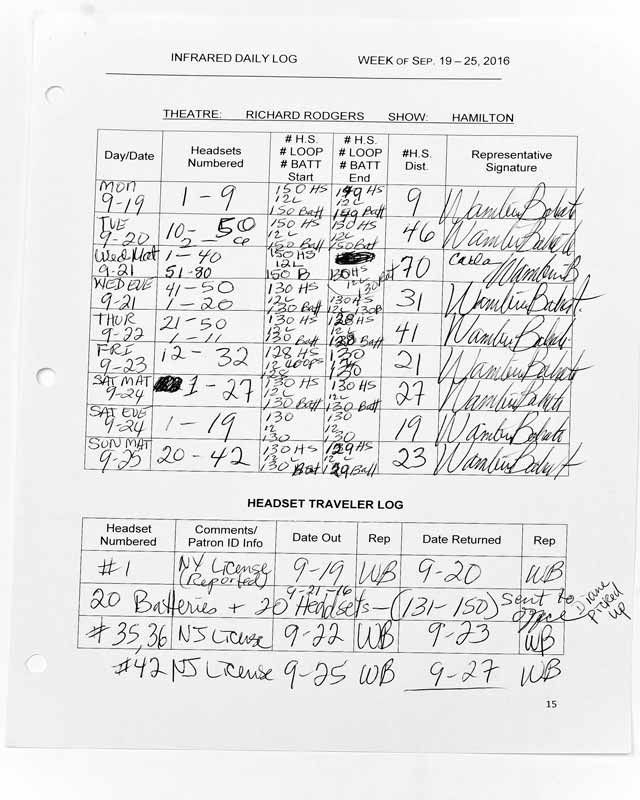 INFRARED DAILY LOG WEEK OF SEP. 19 – 25, 2016
THEATRE: RICHARD RODGERS SHOW: HAMILTON
Day/Date Headsets Numbered # H.S. # LOOP # BATT Start # H.S. # LOOP # BATT End #H.S. Dist. Representative Signature
MON 9-19 1-9 150 HS 12L 150 Batt 149 HS 12L 149 Batt 9
TUE 9-20 10-50 150 HS 12L 150 Batt 150 HS 12L 150 Batt 46
Wed Mat 9-21 1-40 51-80 150 HS 12L 150 B 130 HS 12L 130 Bat 70 Carla
WED EVE 9-21 41-50 1-20 130 HS 12L 130 Batt 130 HS 12L 130B 31
THUR 9-22 21-50 1-11 130 HS 12L 130 Batt 128 HS 12L 128 Batt 41
FRI 9-23 12-32 128 HS 12 LOOPS 128 130 12 130 21
SAT MAT 9-24 1-27 130 HS 12L 130 Batt 130 HS 12L 130 Batt 27
SAT EVE 9-24 1-19 130 12 130 130 12 130 19
SUN MAT 9-25 20-42 130 HS 12L 130 Bat 129 HS 12L 129 Batt 23
HEADSET TRAVELER LOG
Headset Numbered Comments/ Patron ID Info Date Out Rep Date Returned Rep
#1 NY License (Reported) 9-19 WB 9-20 WB
9-21-16
20 Batteries + 20 Headsets – (131-150) Sent to office Diane picked up
#35,36 NJ License 9-22 WB 9-23 WB
#42 NJ License 9-25 WB 9-27 WB
15